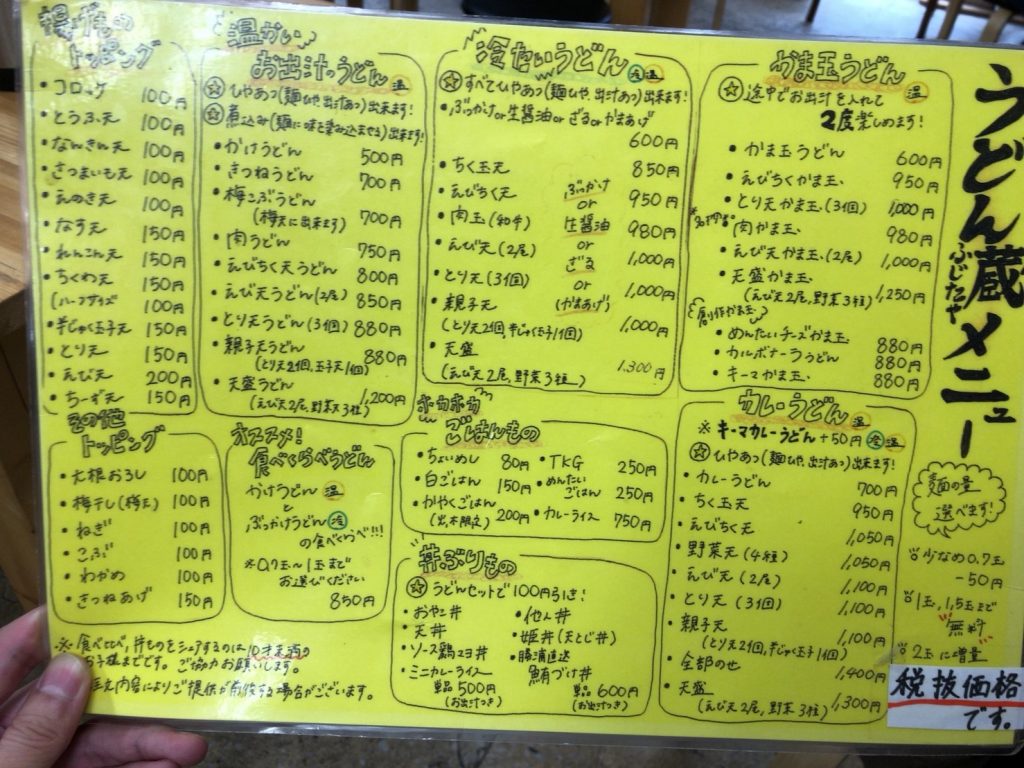 うどん蔵メニュー
ふじたや
揚げもの
トッピング
・コロッケ 100円
・とうふ天 100円
・なんきん天 100円
・さつまいも天 100円
・えのき天 100円
・なす天 150円
・れんこん天 150円
・ちくわ天 150円
(ハーフサイズ 100円
・半じゅく玉子天 150円
・とり天 150円
・えび天 200円
・ちーず天 150円
温かい
お出汁のうどん 温
☆ひやあつ(麺ひや、出汁あつ)出来ます!
☆煮込み(麺に味を染み込ませる)出来ます!
・かけうどん 500円
・きつねうどん 700円
・梅こぶうどん
(梅天に出来ます) 700円
・肉うどん 750円
・えびちく天うどん 800円
・えび天うどん(2尾) 850円
・とり天うどん(3個) 880円
・親子天うどん 880円
(とり天2個、玉子天1個)
・天盛うどん 1,200円
(えび天2尾、野菜3種)
冷たいうどん 冷温
☆すべてひやあつ(麺ひや、出汁あつ)出来ます!
・ぶっかけor生醤油orざるorかまあげ
600円
・ちく玉天 850円
・えびちく天 950円
・肉玉(和牛) 980円
・えび天(2尾) 1,000円
・とり天(3個) 1,000円
・親子天 1,000円
(とり天2個、半じゅく玉子1個)
・天盛 1,300円
(えび天2尾、野菜3種)
ぶっかけ
or
生醤油
or
ざる
or
(かまあげ)
かま玉うどん 温
☆途中でお出汁を入れて
2度楽しめます!
・かま玉うどん 600円
・えびちくかま玉 950円
・とり天かま玉(3個) 1,000円
・肉かま玉 980円
・えび天かま玉(2尾) 1,000円
・天盛かま玉
(えび天2尾、野菜3種) 1,250円
創作かま玉
・めんたいチーズかま玉 880円
・カルボナーラうどん 880円
・キーマかま玉 880円
その他
トッピング
・大根おろし 100円
・梅干し(梅天) 100円
・ねぎ 100円
・こぶ 100円
・わかめ 100円
・きつねあげ 150円
オススメ!
食べくらべうどん
かけうどん 温
と
ぶっかけうどん 冷
の食べくらべ!!!
※0.7玉〜1玉まで
お選びください
850円
ホカホカ
ごはんもの
・ちょいめし 80円
・白ごはん 150円
・かやくごはん 200円
・TKG 250円
・めんたい
ごはん 250円
・カレーライス 750円
丼ぶりもの
☆うどんセットで100円引き!
・おやこ丼
・天丼
・ソース鶏タヨ丼
・ミニカレーライス
単品500円
(お出汁つき)
・他人丼
・姫丼(天とじ丼)
・勝浦直送
鮪づけ丼
単品600円
(お出汁つき)
カレーうどん 温
※キーマカレーうどん+50円 冷温
☆ひやあつ(麺ひや、出汁あつ)出来ます!
・カレーうどん 700円
・ちく玉天 950円
・えびちく天 1,050円
・野菜天(4種) 1,050円
・えび天(2尾) 1,100円
・とり天(3個) 1,100円
・親子天 1,100円
(とり天2個、半じゅく玉子1個)
・全部のせ 1,400円
・天盛 1,300円
(えび天2尾、野菜3種)
麺の量
選べます!
少なめ0.7玉
-50円
1玉、1.5玉まで
無料
2玉に増量
税抜価格
です。
※食べ比べ、丼ものをシェアするのは10才未満の
お子様までです。ご協力お願いします。
文内容によりご提供が前後する場合がございます。